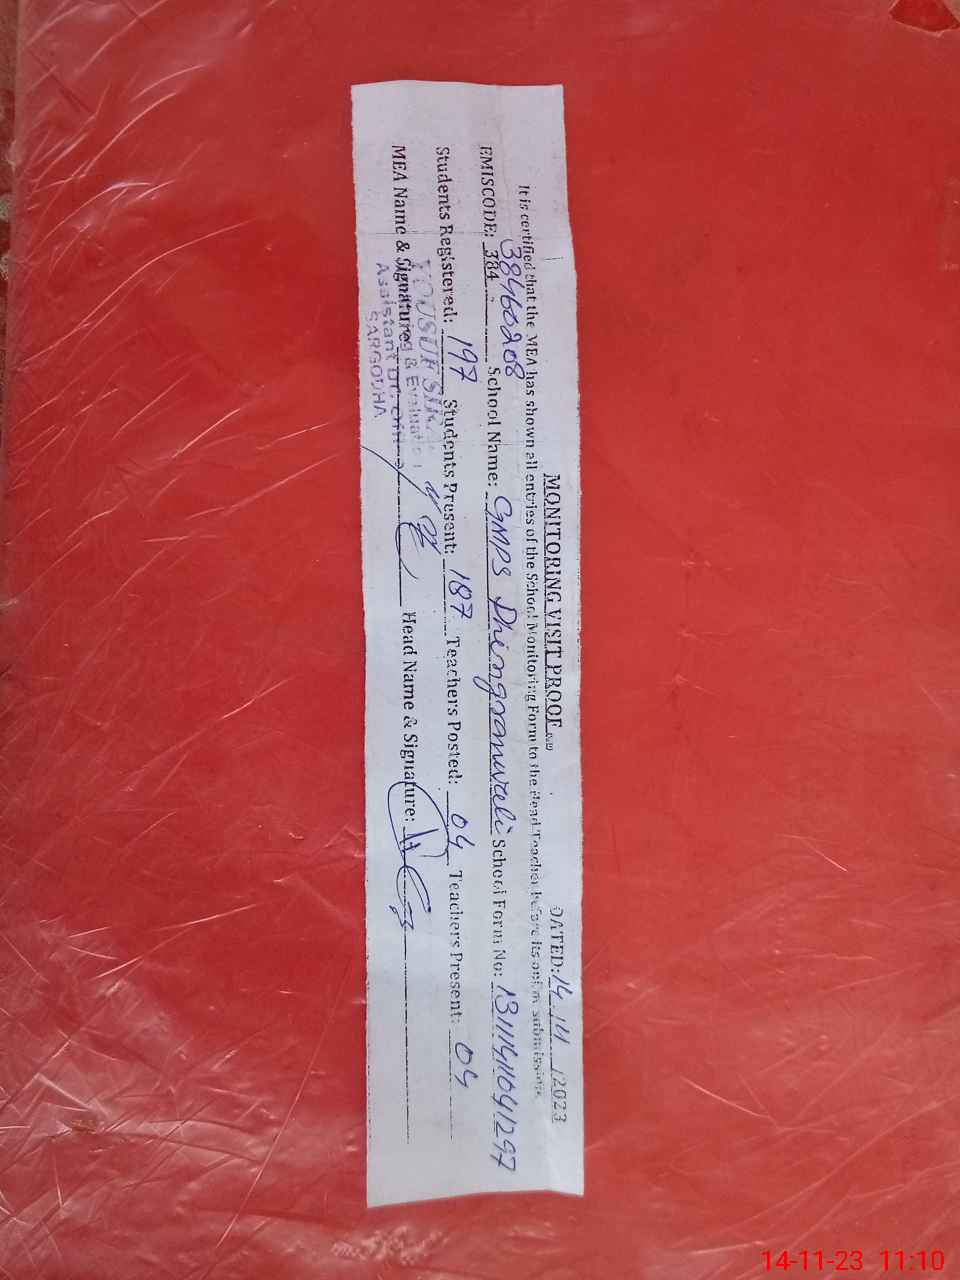 MONITORING VISIT PROOF
DATED: 14/11/2023
It is certified that the MEA has shown all entries of the School Monitoring Form to the Head Teacher before its submission.
38460208
EMISCODE: 384 School Name: GMPS Dhingranwali School Form No:
Students Registered: 197 Students Present: 187 Teachers Posted: 04 Teachers Present: 04
MEA Name & Signature: Head Name & Signature:
YOUSUF
& Evaluation
Assistant
SARGODHA
14-11-23 11:10